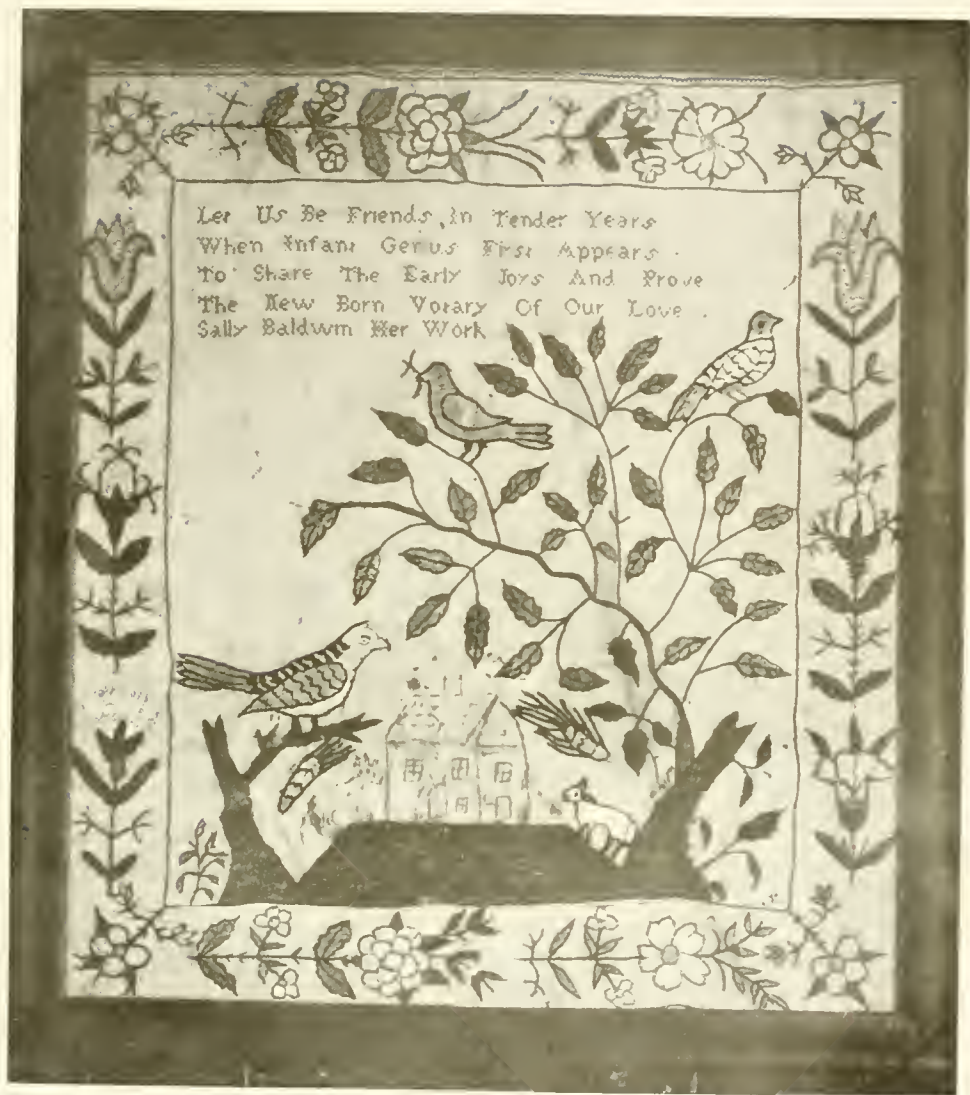 Let Us Be Friends, In Tender Years
When Infant Genius First Appears
To Share The Early Joys And Prove
The New Born Votary Of Our Love .
Sally Baldwin Her Work